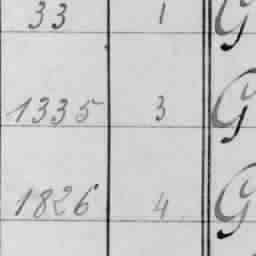 33 1 G
1335 3 G
1826 4 G